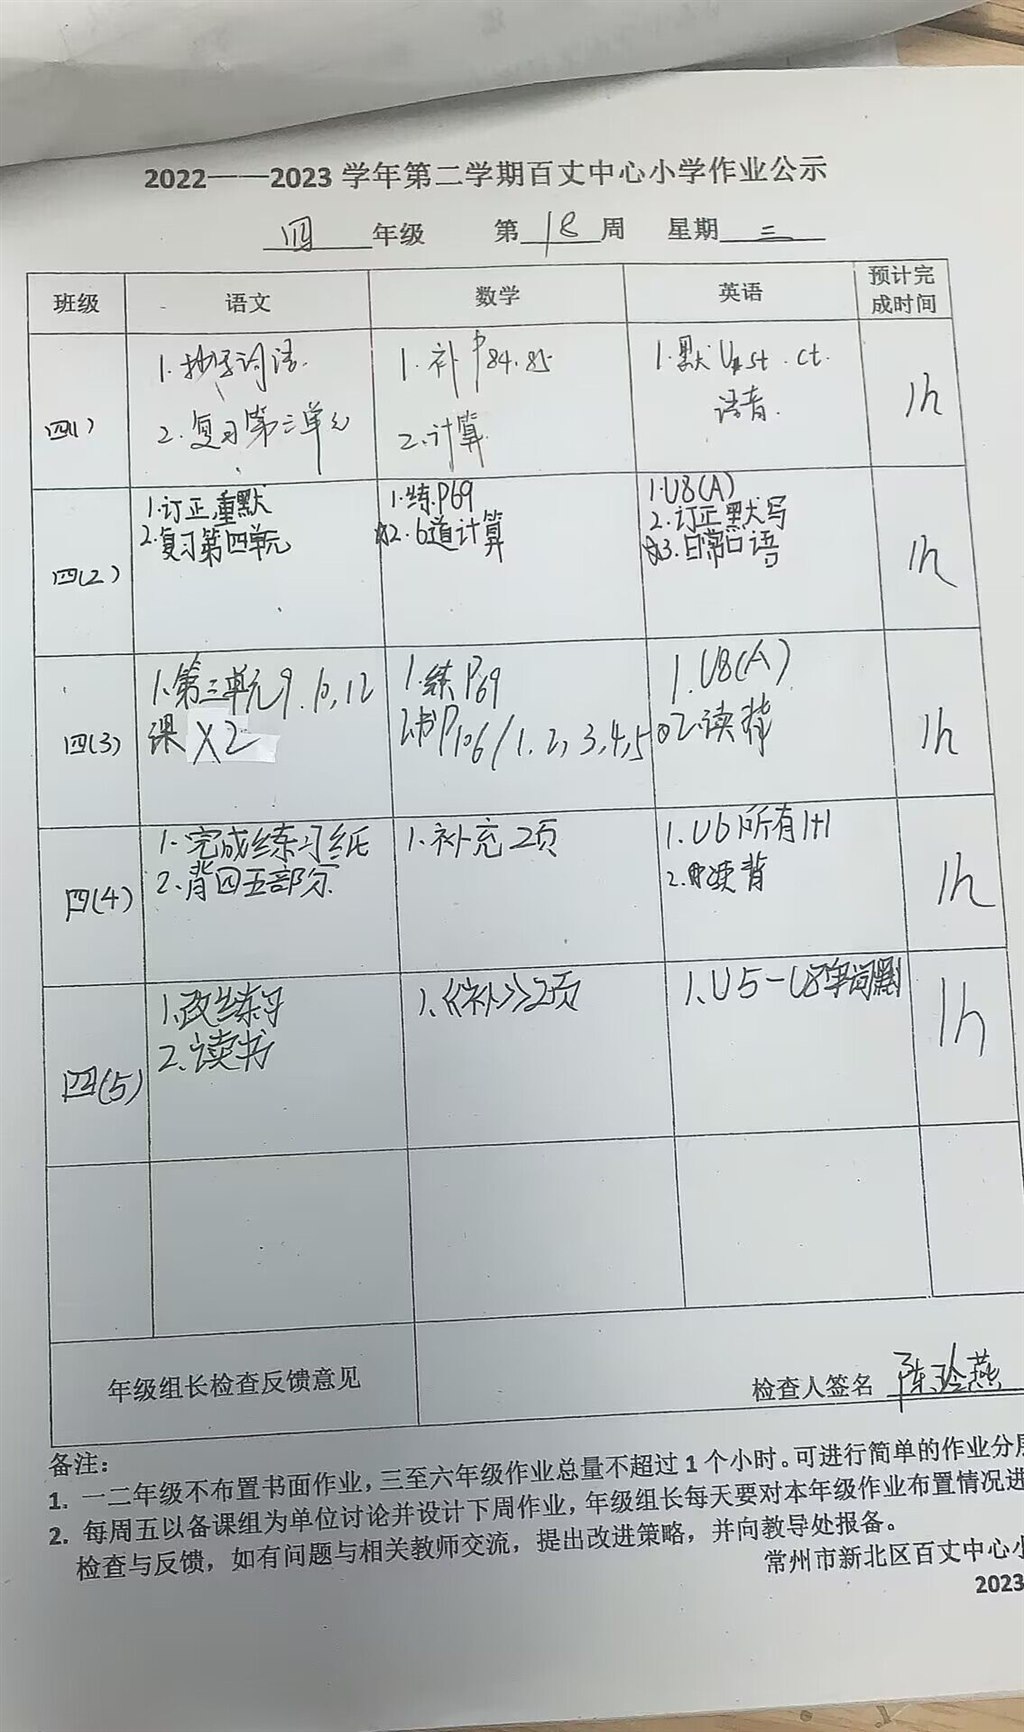 2022——2023 学年第二学期百丈中心小学作业公示
四 年级 第 18 周 星期 三
班级 语文 数学 英语 预计完
成时间
四(1)
1.抄写词语.
2.复习第三单元
1.补 P84.85
2.计算.
1.默 st . ct.
语音.
1h
四(2)
1.订正,重默
2.复习第四单元
1.练P69
☆2.6道计算
1.U8(A)
2.订正默写
☆3.日常口语
1h
四(3)
1.第三单元9.10,12
课 X2
1.练P69
2.书P106/1,2,3,4,5
1.U8(A)
2.读背
1h
四(4)
1.完成练习纸
2.背四五部分
1.补充2页
1.U6所有1+1
2.读背
1h
四(5)
1.改练习
2.读书
1.《补》2页
1.U5-U8单词默
1h
年级组长检查反馈意见
检查人签名 陈玲燕
备注:
1. 一二年级不布置书面作业，三至六年级作业总量不超过 1 个小时。可进行简单的作业分层
2. 每周五以备课组为单位讨论并设计下周作业，年级组长每天要对本年级作业布置情况进
检查与反馈，如有问题与相关教师交流，提出改进策略，并向教导处报备。
常州市新北区百丈中心小
2023